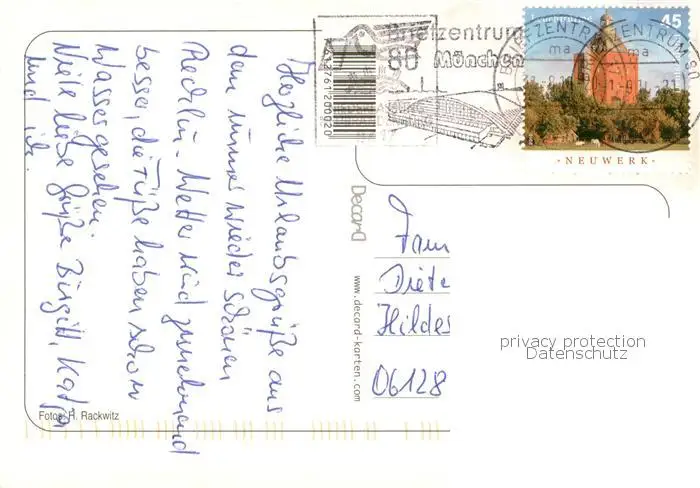 Herzliche Urlaubsgrüße aus
dem immer wieder schönen
Rechlin. Wetter wird zunehmend
besser, die Füße haben schon
Wasser gesehen.
Viele liebe Grüße Birgitt, Katja
und ich.
Fotos: H. Rackwitz
4 012761 200020
Decard
www.decard-karten.com
Briefzentrum
80 München
BRIEFZENTRUM
ma
BRIEFZENTRUM
ma
45
NEUWERK
Fam
Diete
Hildes
06128
privacy protection
Datenschutz